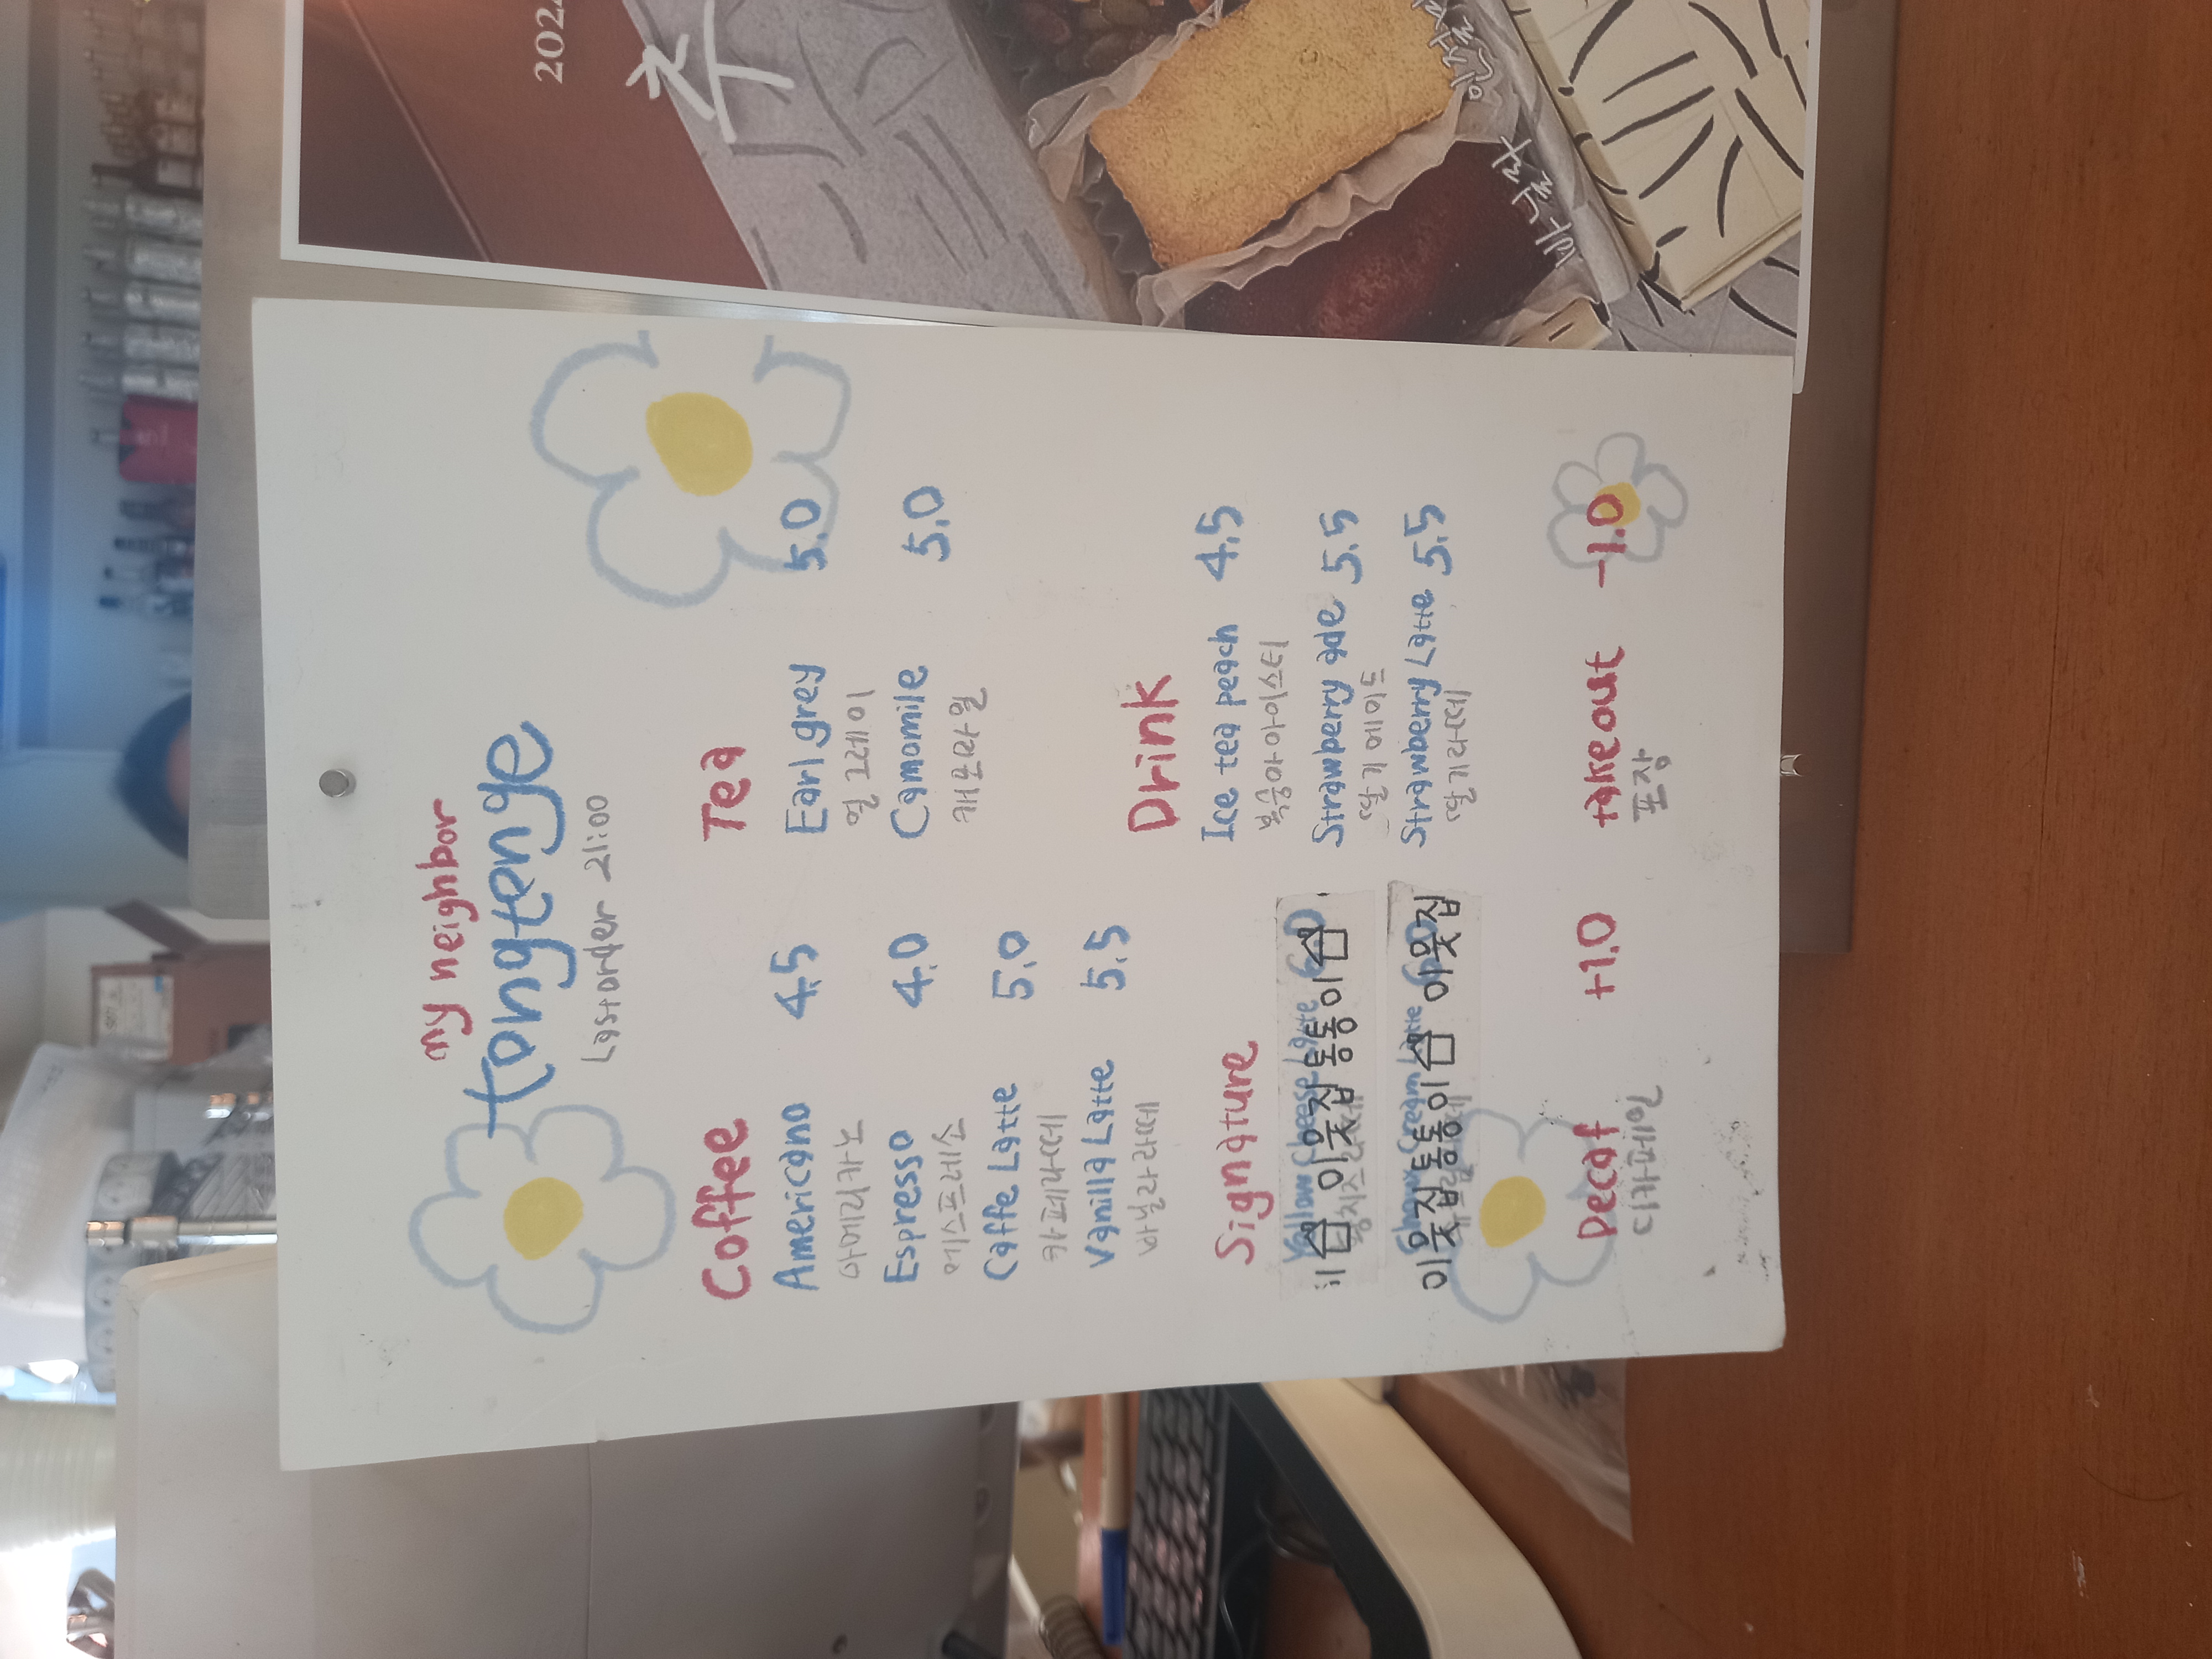 my neighbor
tongtenge
Last order 21:00
Coffee
Americano 4.5
아메리카노
Espresso 4.0
에스프레소
Caffe Latte 5.0
카페라떼
Vanilla Latte 5.5
바닐라라떼
Signature
이웃집통통이
이웃집통통이 이웃집
Decaf +1.0
디카페인
Tea
Earl grey 5.0
얼그레이
Camomile 5.0
캐모마일
Drink
Ice tea peach 4.5
복숭아아이스티
Strawberry ade 5.5
딸기에이드
Strawberry Latte 5.5
딸기라떼
takeout -1.0
포장
바닐라